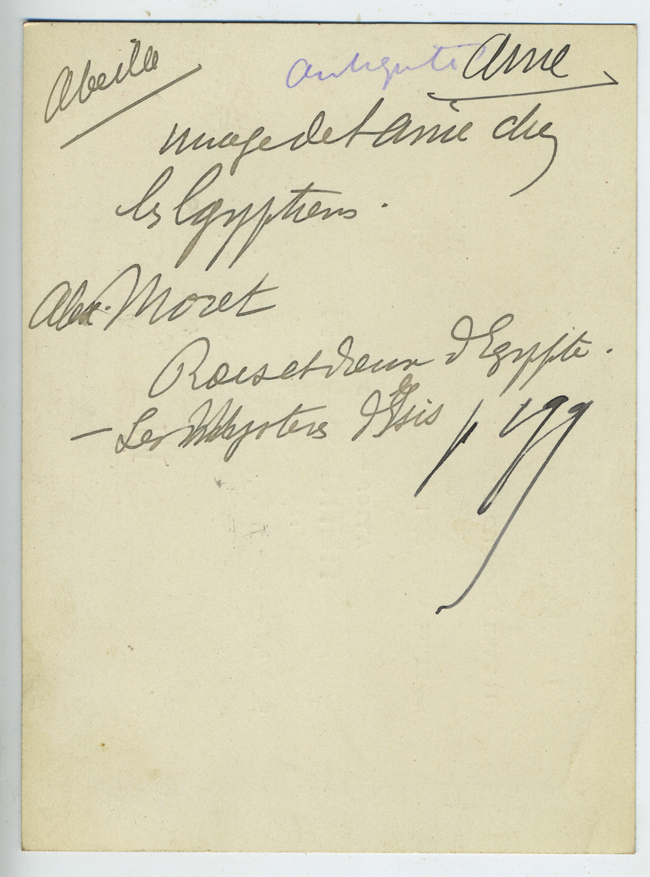 Abeille
antiquité Ame
image de l'ame chez
les Egyptiens.
Alex. Moret
Rois et dieux d'Egypte.
— Les Mystères d'Isis p 199